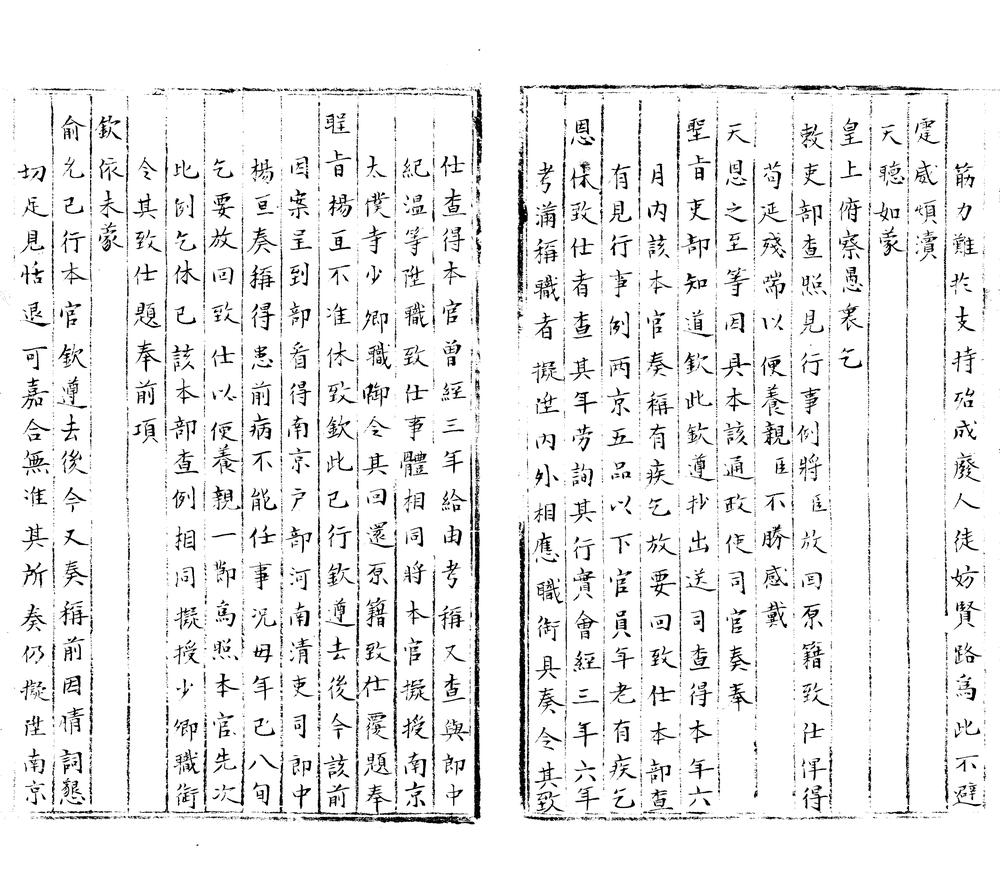 筋力難於支持殆成廢人徒妨賢路爲此不避
霆威煩瀆
天聽如蒙
皇上俯察愚衷乞
敕吏部查照見行事例將臣放回原籍致仕俾得
苟延殘喘以便養親臣不勝感戴
天恩之至等因具本該通政使司官奏奉
聖旨吏部知道欽此欽遵抄出送司查得本年六
月內該本官奏稱有疾乞放要回致仕本部查
有見行事例兩京五品以下官員年老有疾乞
恩休致仕者查其年勞詢其行實會經三年六年
考滿稱職者擬陞內外相應職銜具奏令其致
仕查得本官曾經三年給由考稱又查與郎中
紀温等陞職致仕事體相同將本官擬授南京
太僕寺少卿職銜令其回還原籍致仕覆題奉
聖旨楊亘不准休致欽此已行欽遵去後今該前
因案呈到部看得南京户部河南清吏司郎中
楊亘奏稱得患前病不能任事况母年已八旬
乞要放回致仕以便養親一節爲照本官先次
比例乞休已該本部查例相同擬授少卿職銜
令其致仕題奉前項
欽依未蒙
俞允已行本官欽遵去後今又奏稱前因情詞懇
切足見恬退可嘉合無准其所奏仍擬陞南京